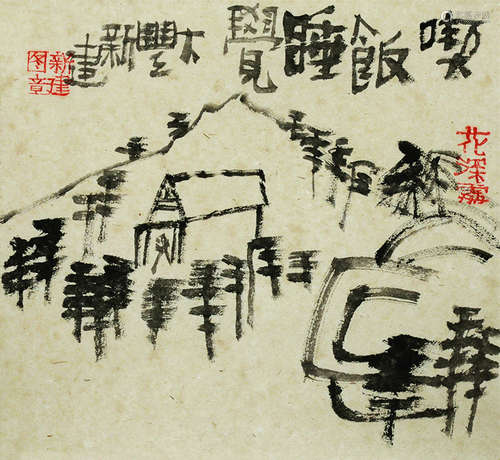 喫飯睡覺大豐新建
新建
图章
花深處